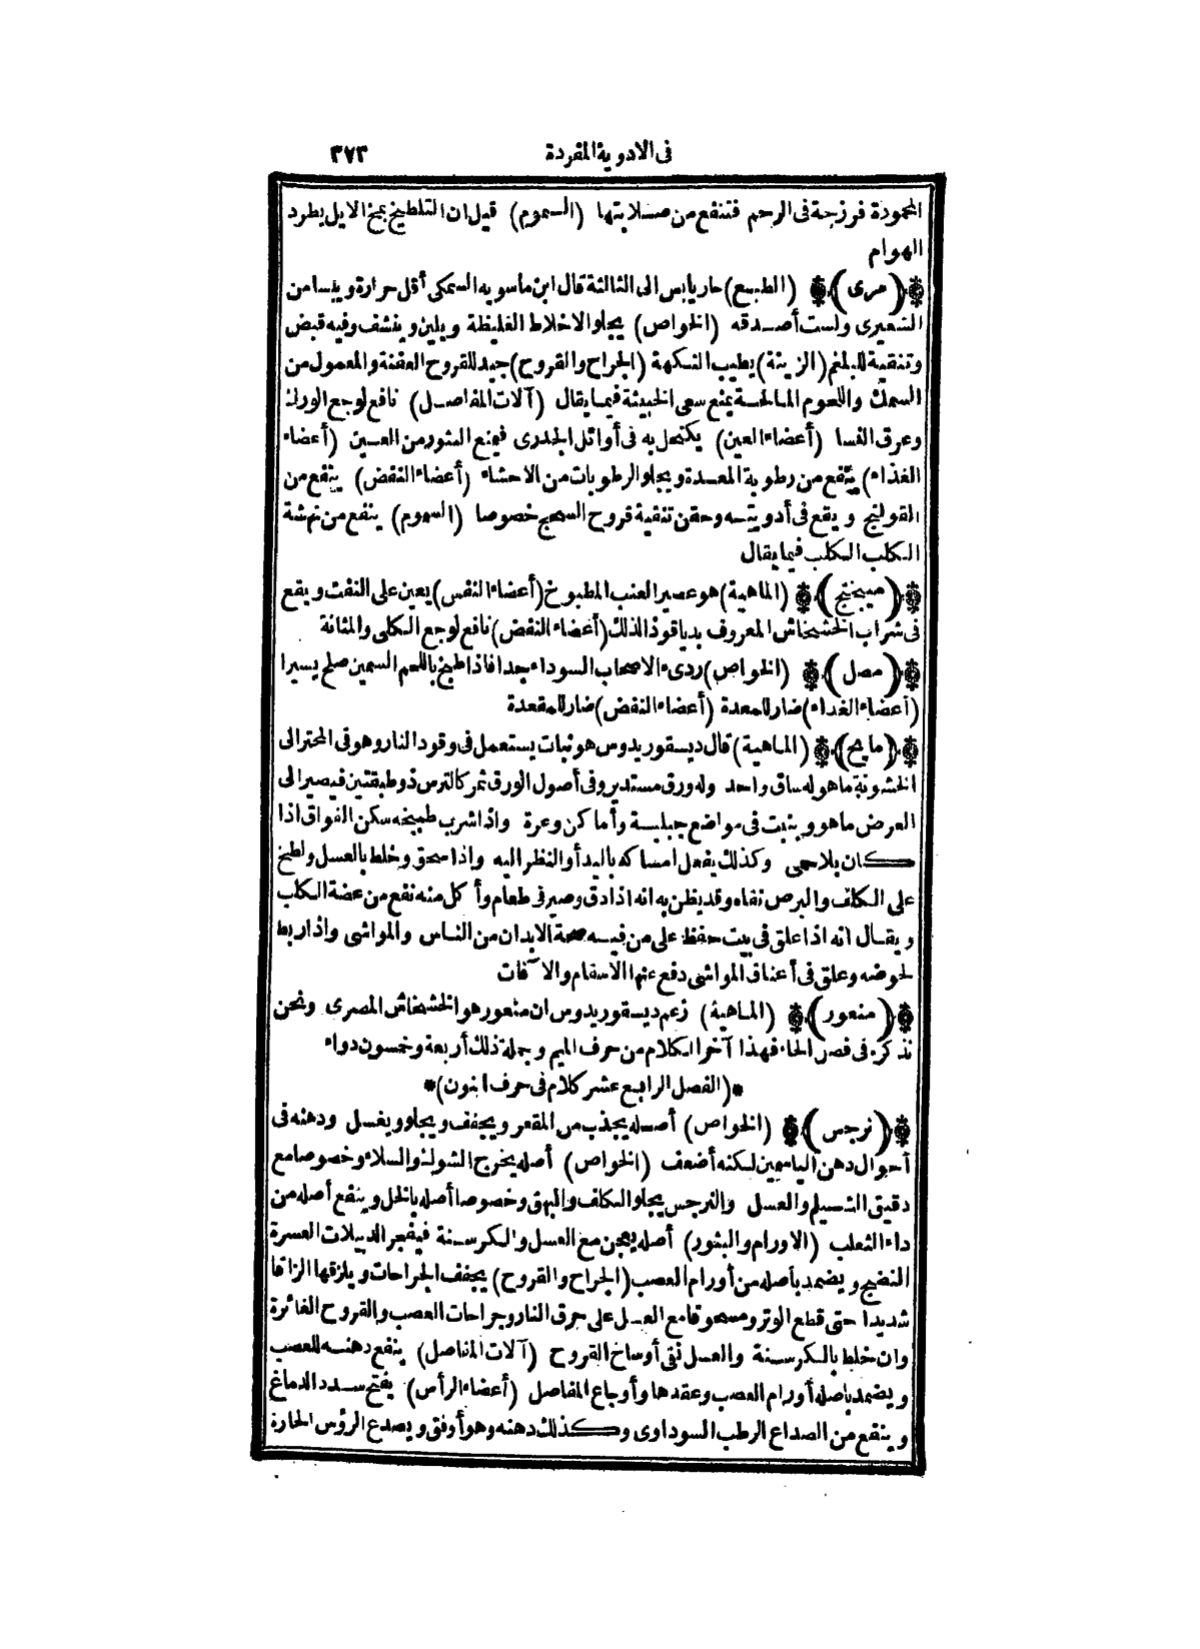 فى الادوية المفردة ٣٧٣
المحمودة فرزجة فى الرحم فتنفع من صلابتها (السموم) قيل ان التلطيخ بمخ الايل يطرد
الهوام
(مرى) (الطبع) حار يابس الى الثالثة قال ابن ماسويه السمكى أقل حرارة ويبسا من
الشعيرى ولست أصدقه (الخواص) يجلو الاخلاط الغليظة ويلين وينشف وفيه قبض
وتنقية للبلغم (الزينة) يطيب النكهة (الجراح والقروح) جيد للقروح العفنة والمعمول من
السمك واللحوم المالحة يمنع سعى الخبيثة فيما يقال (آلات المفاصل) نافع لوجع الورك
وعرق النسا (أعضاء العين) يكتحل به فى أوائل الجدرى فيمنع البثور من العين (أعضاء
الغذاء) ينفع من رطوبة المعدة ويجلو الرطوبات من الاحشاء (أعضاء النفض) ينفع من
القولنج ويقع فى أدويته وحقن تنقية قروح السحج خصوصا (السموم) ينفع من نهشة
الكلب الكلب فيما يقال
(ميبختج) (الماهية) هو عصير العنب المطبوخ (أعضاء النفس) يعين على النفث ويقع
فى شراب الخشخاش المعروف بدياقوذ الذلك (أعضاء النفض) نافع لوجع الكلى والمثانة
(مصل) (الخواص) ردىء لاصحاب السوداء جدا فاذا طبخ باللحم السمين صلح يسيرا
(أعضاء الغذاء) ضار للمعدة (أعضاء النفض) ضار للمقعدة
(مايح) (الماهية) قال ديسقوريدوس هو نبات يستعمل فى وقود النار وهو فى المحتر الى
الخشونة ما هو له ساق واحد وله ورق مستدير وفى أصول الورق ثمر كالترس ذو طبقتين فيصير الى
العرض ما هو وينبت فى مواضع جبلية وأماكن وعرة واذا شرب طبيخه سكن الفواق اذا
كان بلا حمى وكذلك يفعل امساكه باليد أو النظر اليه واذا سحق وخلط بالعسل ولطخ
على الكلف والبرص نفاه وقد يظن به انه اذا دق وصير فى طعام وأكل منه نفع من عضة الكلب
ويقال انه اذا علق فى بيت حفظ على من فيه صحة الابدان من الناس والمواشى واذا ربط
لخوضه وعلق فى أعناق المواشى دفع عنها الاسقام والآفات
(منعور) (الماهية) زعم ديسقوريدوس ان منعور هو الخشخاش المصرى ونحن
نذكره فى فصل الخاء فهذا آخر الكلام من حرف الميم وجملة ذلك أربعة وخمسون دواء
*(الفصل الرابع عشر كلام فى حرف النون)*
(نرجس) (الخواص) أصله يجذب من المقعر ويجفف ويجلو ويغسل ودهنه فى
أحوال دهن الياسمين لكنه أضعف (الخواص) أصله يخرج الشوك والسلاء وخصوصا مع
دقيق الشيلم والعسل والنرجس يجلو الكلف والبهق وخصوصا أصله بالخل وينفع أصله من
داء الثعلب (الاورام والبثور) أصله يعجن مع العسل والكرسنة فيفجر الدبيلات العسرة
النضج ويضمد بأصله من أورام العصب (الجراح والقروح) يجفف الجراحات ويلزقها الزاقا
شديدا حتى قطع الوتر ومسحوقا مع العسل على حرق النار وجراحات العصب والقروح الغائرة
وان خلط بالكرسنة والعسل نقى أوساخ القروح (آلات المفاصل) ينفع دهنه للعصب
ويضمد باصله أورام العصب وعقدها وأوجاع المفاصل (أعضاء الرأس) يفتح سدد الدماغ
وينفع من الصداع الرطب السوداوى وكذلك دهنه وهو أوفق ويصدع الرؤس الحارة